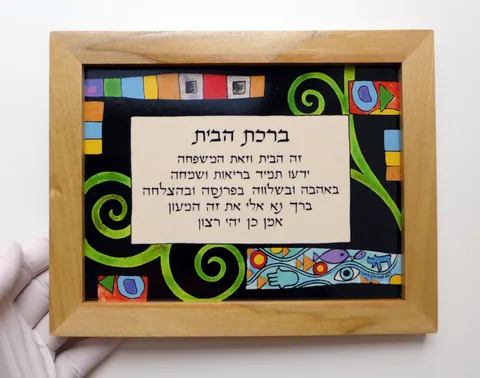 ברכת הבית
זה הבית וזאת המשפחה
ידעו תמיד בריאות ושמחה
באהבה ובשלווה בפרנסה ובהצלחה
ברך נא אלי את זה המעון
אמן כן יהי רצון